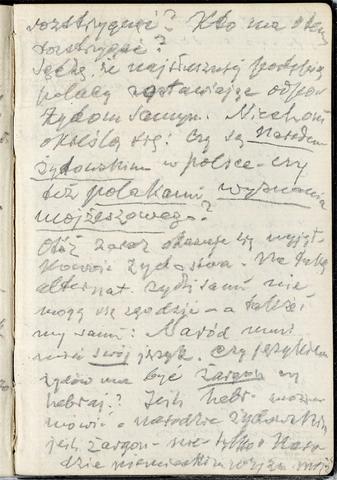 rozstrzygnąć? Kto ma o tem
rozstrzygać?
Sądzę, że najsłuszniej postąpią
polacy zostawiając odpow.
Żydom samym. Niech oni
określą się: czy są narodem
żydowskim w polsce - czy
też polakami wyznania
mojżeszowego?
Otóż zaraz okazuje się wyjąt-
kowość żydostwa. Na taką
alternat. żydzi sami nie
mogą się zgodzić - a także i
my sami: Naród musi
mieć swój język. Czy językiem
żydów ma być żargon czy
hebraj? Jeśli hebr. można
mówić o narodzie żydowskim
jeśli żargon - nie tylko o naro-
dzie niemieckim